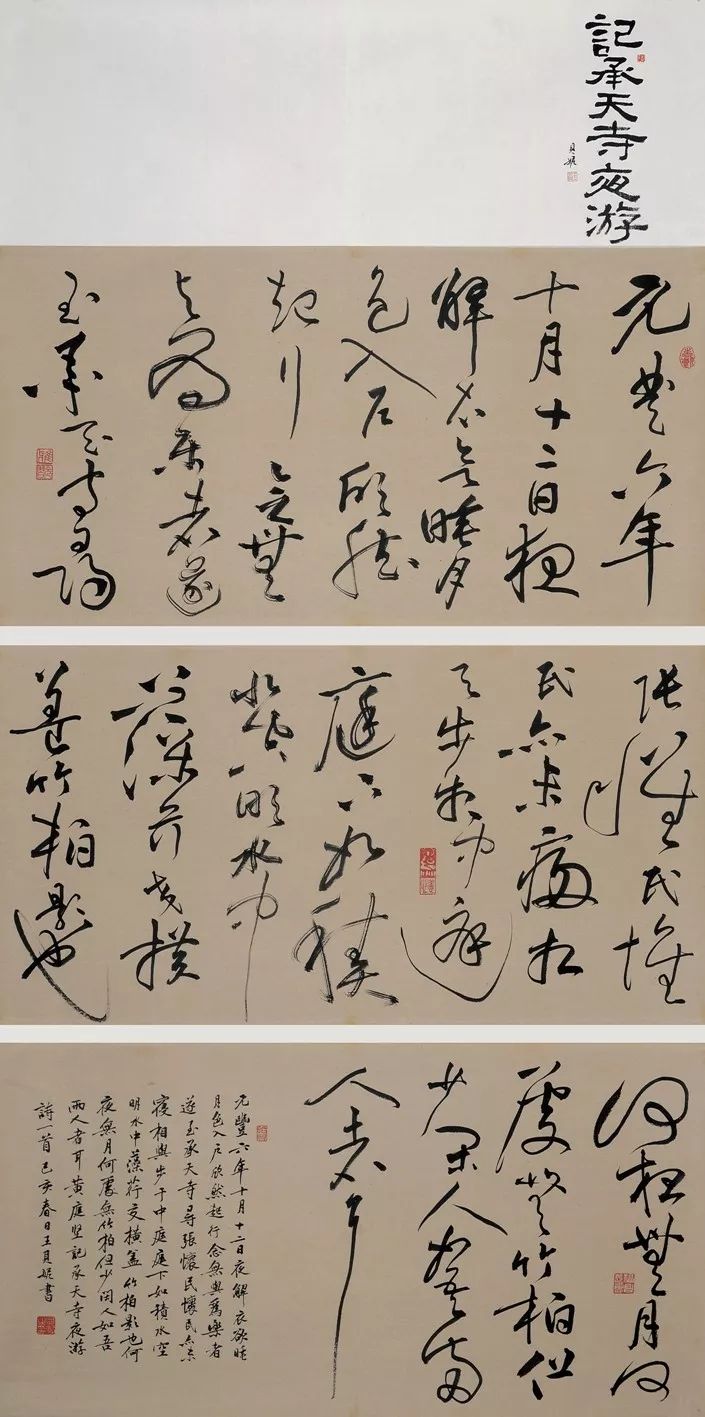 記承天寺夜游
元豐六年
十月十二日夜
解衣欲睡月
色入户欣然
起行念無
与為樂者遂
至承天寺尋
張懷民懷
民亦未寢相
与步于中庭
庭下如積
水空明水中
藻荇交橫
蓋竹柏影也
何夜無月何
處無竹柏但
少閑人如吾兩
人者耳
元豐六年十月十二日夜解衣欲睡
月色入户欣然起行念無與為樂者
遂至承天寺尋張懷民懷民亦未
寢相與步于中庭庭下如積水空
明水中藻荇交橫蓋竹柏影也何
夜無月何處無竹柏但少閑人如吾
兩人者耳黃庭堅記承天寺夜游
詩一首己亥春日王書